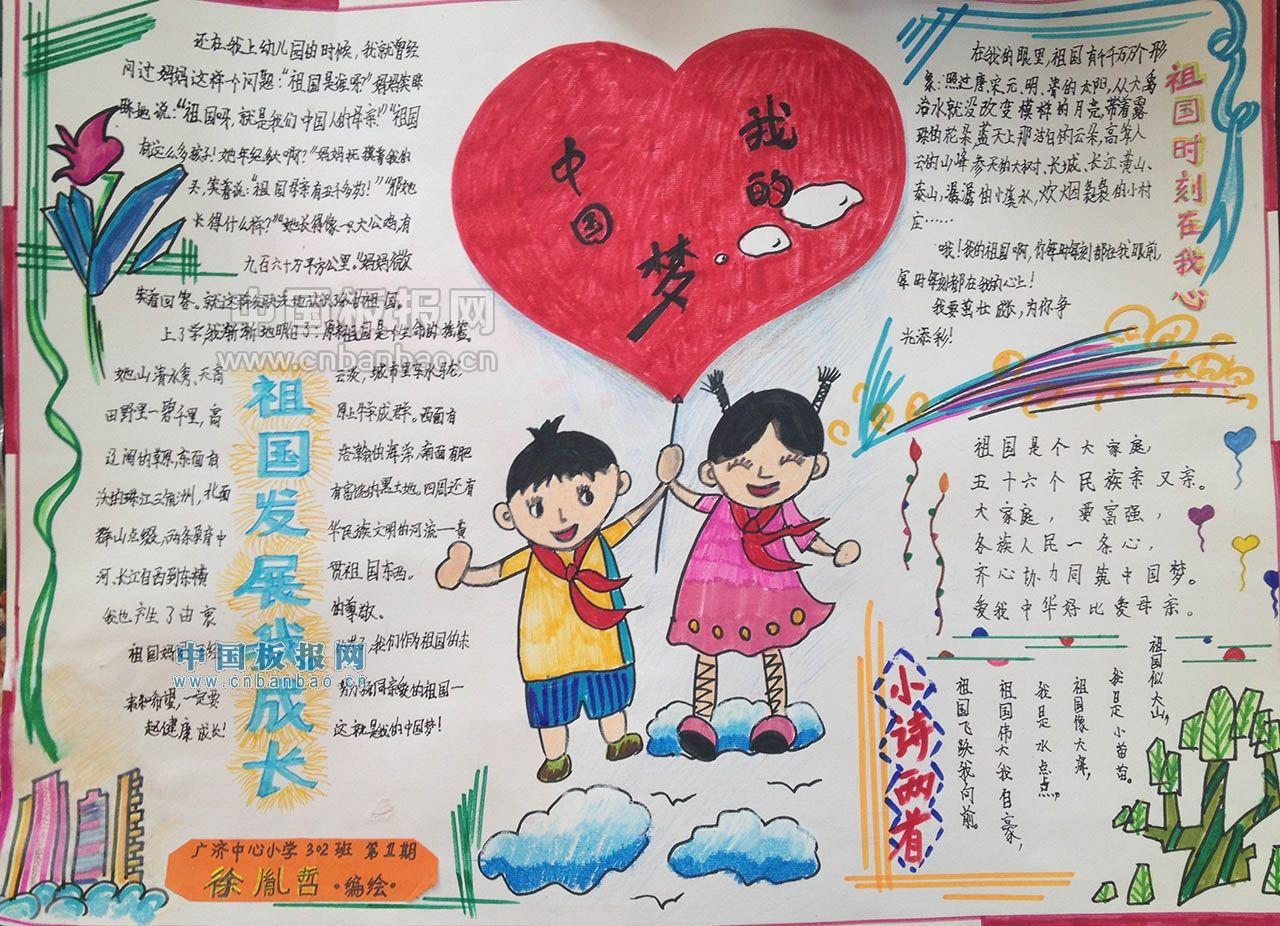 还在我上幼儿园的时候，我就曾经
问过妈妈这样一个问题：“祖国是谁呀？”妈妈笑眯
眯地说：“祖国呀，就是我们中国人的母亲！”“祖国
有这么多孩子！她年纪
啊？”妈妈抚摸着我的
头，笑着说：“祖国母亲有五千多岁！”“那她
长得什么样？”“她长得像一只大公鸡有
九百六十万平方公里。”妈妈微
笑着回答。就这样
地认识
祖国。
上了学我渐渐地明白了：原来祖国是个生命的摇篮。
她山清水秀，天高
云淡，城市里车水马龙，
田野里一碧千里，高
原上牛羊成群。西面有
辽阔的草原，东面有
浩瀚的海洋，南面有肥
沃的珠江三角洲，北面
有富饶的黑土地。四周还有
群山点缀，两条孕育中
华民族文明的河流一黄
河、长江自西到东横
贯祖国东西。
我也产生了由衷
的尊敬。
祖国妈妈
我们作为祖国的未
来和希望，一定要
祖国一
起健康成长！
这就是我的中国梦！
祖国发展我成长
中国板报网
www.cnbanbao.cn
中国板报网
www.cnbanbao.cn
广济中心小学302班 第Ⅱ期
徐胤哲·编绘·
我的
中国
梦
祖国时刻在我心
在我的眼里，祖国有千千万万个形
象：照过唐、宋、元、明、清的太阳，从大禹
治水就没改变模样的月亮，带着露
珠的花朵，蓝天上那洁白的云朵，高耸入
云的山峰，参天的大树、长城、长江、黄山、
泰山，潺潺的小溪水，炊烟袅袅的小村
庄……
哦！我的祖国啊，你每时每刻都在我眼前，
每时每刻都在我的心上！
我要茁壮成长，为你争
光添彩！
祖国是个大家庭，
五十六个民族亲又亲。
大家庭，要富强，
各族人民一条心，
齐心协力同筑中国梦。
爱我中华好比爱母亲。
小诗两首
祖国似大山，
我是小苗苗。
祖国像大海，
我是水点点，
祖国伟大我自豪，
祖国飞跃我向前。